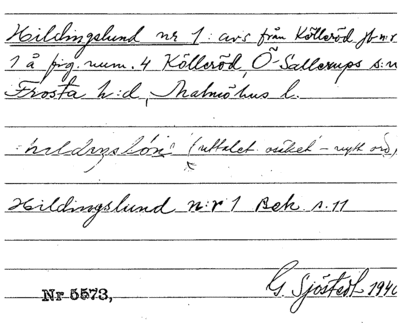 Hildingslund nr 1: avs från Kölleröd jb nr
1 å fig. num. 4 Kölleröd, Ö-Sallerups s:n
Frosta h:d, Malmöhus l.
(uttalet osäkert - nytt ord)
Hildingslund n:r 1 Bek s. 11
Nr 5573, G. Sjöstedt 1940